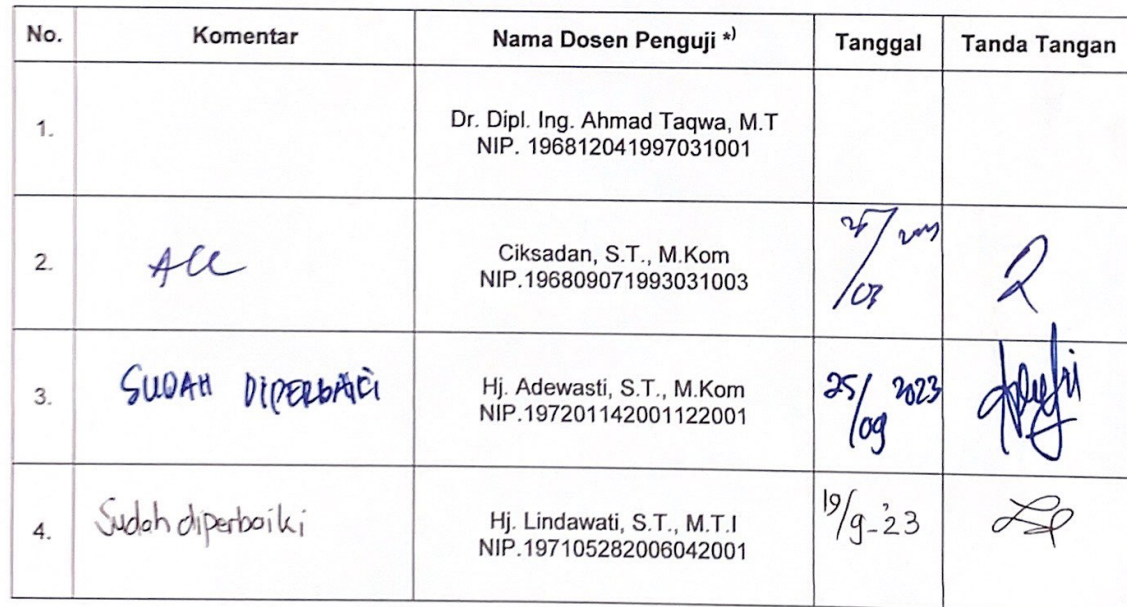 No. Komentar Nama Dosen Penguji *) Tanggal Tanda Tangan
1. Dr. Dipl. Ing. Ahmad Taqwa, M.T
NIP. 196812041997031001
2. ACC Ciksadan, S.T., M.Kom
NIP.196809071993031003
3. SUDAH DIPERBAIKI Hj. Adewasti, S.T., M.Kom 25/09 2023
NIP.197201142001122001
4. Sudah diperbaiki Hj. Lindawati, S.T., M.T.I 19/9-'23
NIP.197105282006042001